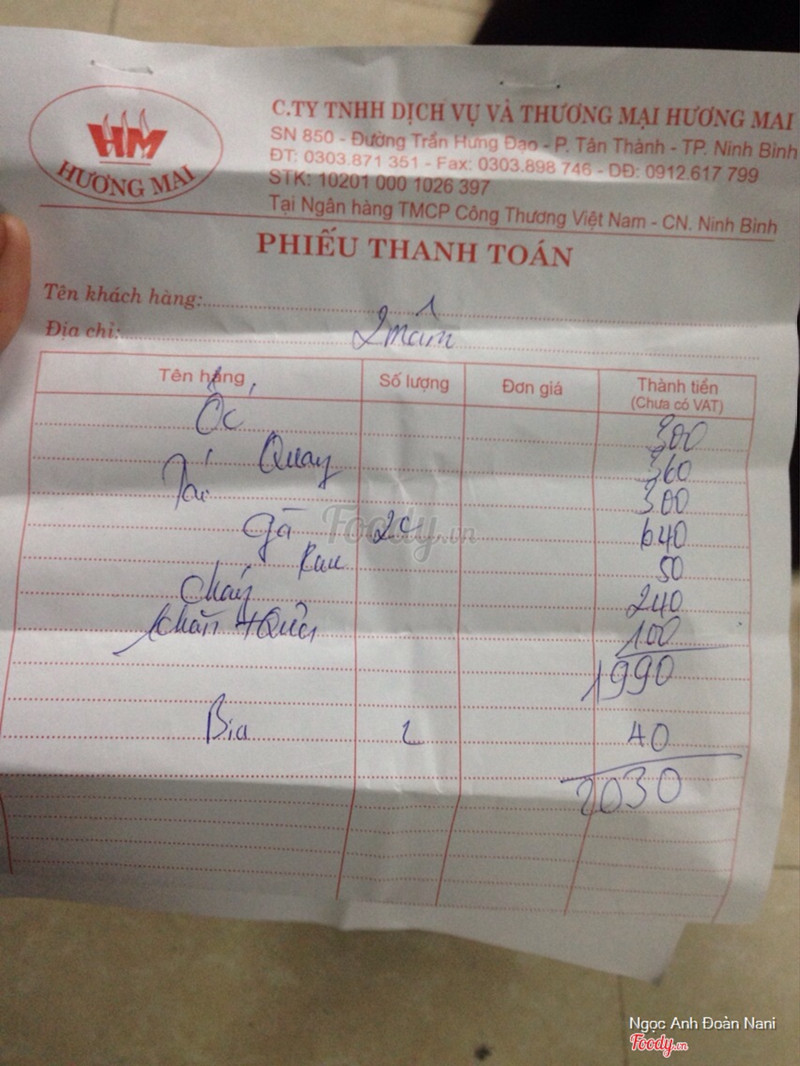 HM
HƯƠNG MAI
C.TY TNHH DỊCH VỤ VÀ THƯƠNG MẠI HƯƠNG MAI
SN 850 - Đường Trần Hưng Đạo - P. Tân Thành - TP. Ninh Bình
ĐT: 0303.871 351 - Fax: 0303.898 746 - DĐ: 0912.617 799
STK: 10201 000 1026 397
Tại Ngân hàng TMCP Công Thương Việt Nam - CN. Ninh Bình
PHIẾU THANH TOÁN
Tên khách hàng:
Địa chỉ: 2 mâm
Tên hàng Số lượng Đơn giá Thành tiền
(Chưa có VAT)
Ốc 300
Quay 360
Tái 300
Gà 640
Rau 50
Cháy 240
Khăn + Quên 100
1990
Bia 2 40
2030
Foody.vn
Ngọc Anh Đoàn Nani
Foody.vn